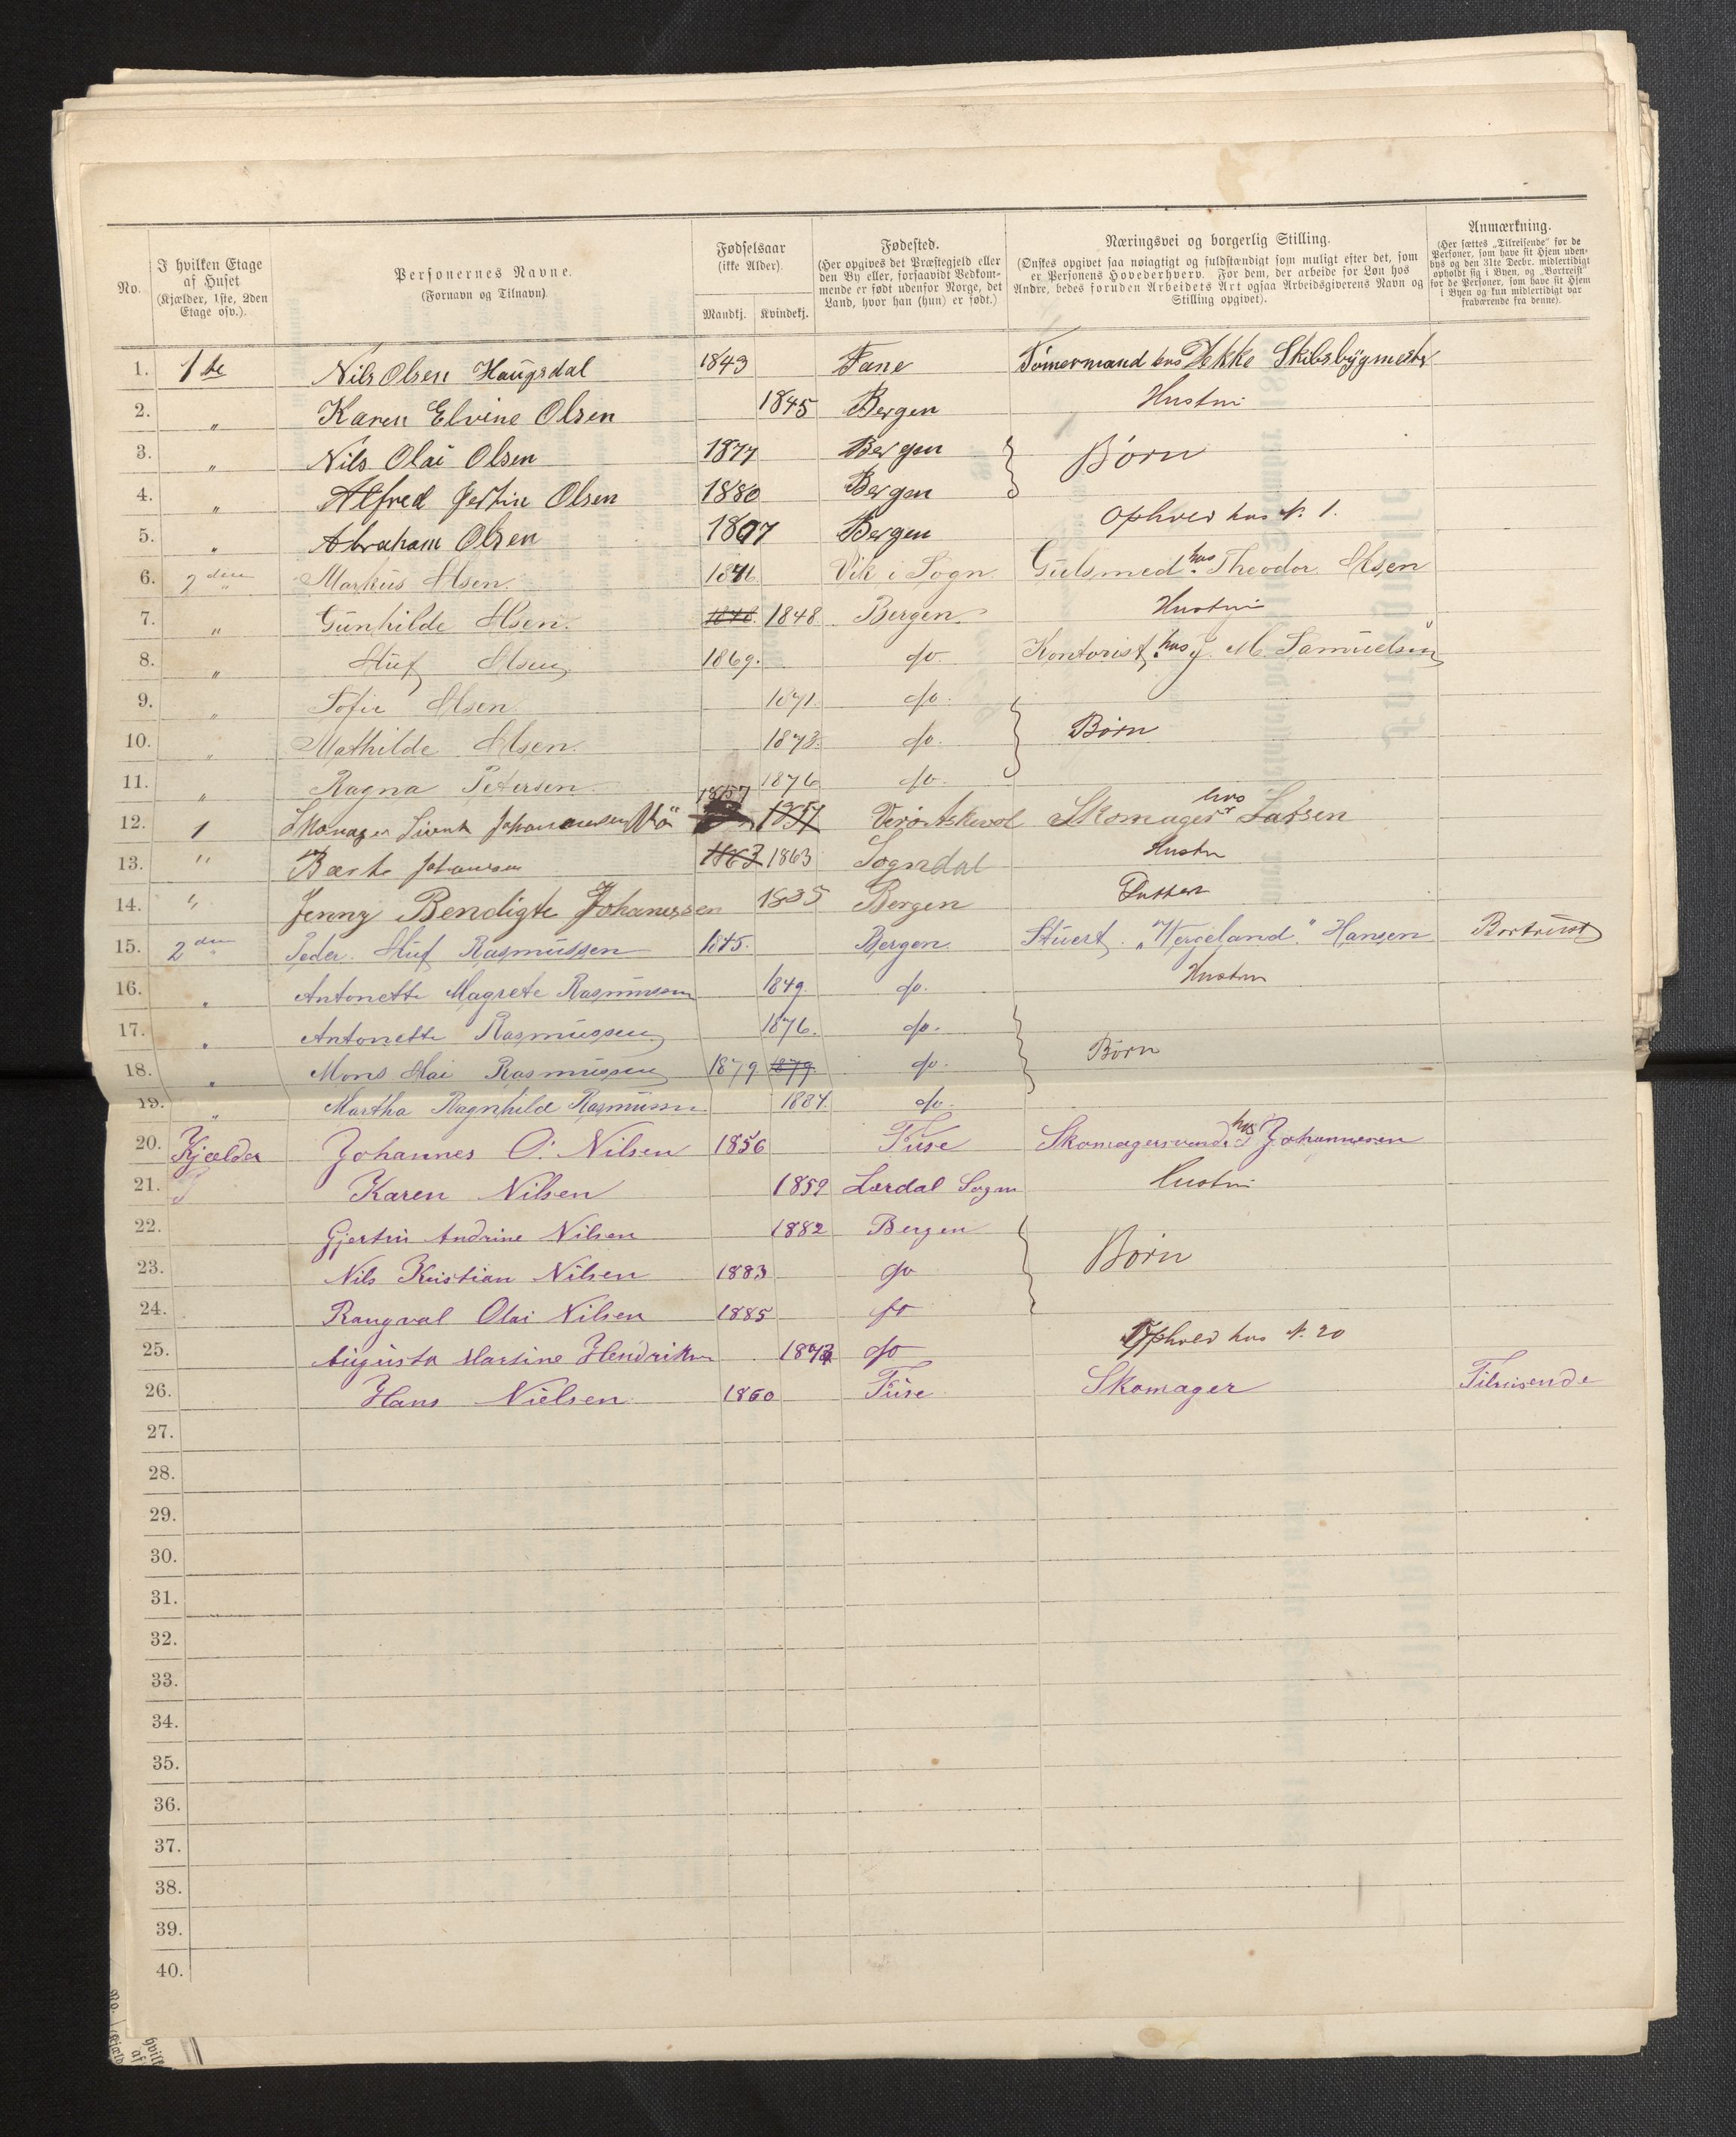 No.
I hvilken Etage af Huset (Kjælder, 1ste, 2den Etage osv.).
Personernes Navne. (Fornavn og Tilnavn)
Fødselsaar (ikke Alder).
Mandkj. Kvindekj.
Fødested. (Her opgives det Præstegjeld eller den By eller, forsaavidt Vedkommende er født udenfor Norge, det Land, hvor han (hun) er født.)
Næringsvei og borgerlig Stilling. (Ønskes opgivet saa nøiagtigt og fuldstændigt som muligt efter det, som er Personens Hovederhverv. For dem, der arbeide for Løn hos Andre, bedes foruden Arbeidets Art ogsaa Arbeidsgiverens Navn og Stilling opgivet).
Anmærkning. (Her sættes „Tilreisende“ for de Personer, som have sit Hjem udenbys og den 31te Decbr. midlertidigt opholdt sig i Byen, og „Bortreist“ for de Personer, som have sit Hjem i Byen og kun midlertidigt var fraværende fra denne).
1. 1ste Nils Olsen Haugsdal 1843 Fane Tømermand hos Dekke Skibsbygmester
2. " Karen Elvine Olsen 1845 Bergen Hustru
3. " Nils Olai Olsen 1877 Bergen } Børn
4. " Alfred Olsen 1880 Bergen
5. " Abraham Olsen 1807 Bergen Ophold hos N. 1.
6. 2den Markus Olsen 1846 Vik i Sogn Gulsmed hos Theodor Olsen
7. " Gunhilde Olsen. 1848 1848 Bergen. Hustru
8. " Oluf Olsen 1869. do. Kontorist, hos J. M. Samuelsen
9. " Sofie Olsen 1871. do. } Børn
10. " Mathilde Olsen. 1873. do.
11. " Ragna Petersen 1876 do.
12. 1 Skomager Johannessen 1857 1857 Skomager hos Larsen
13. " Johansen 1863 1863 Sogndal Hustru
14. " Jenny Bendigte Johanessen 1835 Bergen
15. 2den Peder Oluf Rasmussen 1845. Bergen. Stuert „Wergeland.“ Hansen Bortreist
16. " Antonette Magrete Rasmussen 1849. do. Hustru
17. " Antonette Rasmussen 1876. do. } Børn
18. " Mons Olai Rasmussen 1879 1879. do.
19. " Martha Ragnhild Rasmussen 1884. do.
20. Kjælder Johannes O. Nilsen 1856 Fuse Skomagersvend hos Johannesen
21. Karen Nilsen 1859 Lærdal Sogn Hustru
22. Gjertin Andrine Nilsen 1882 Bergen } Børn
23. Nils Kristian Nilsen 1883 do
24. Rangval Olai Nilsen 1885 do
25. Augusta Martine Hendriksen do Ophold hos N. 20
26. Hans Nielsen 1860 Fuse Skomager Tilreisende
27.
28.
29.
30.
31.
32.
33.
34.
35.
36.
37.
38.
39.
40.